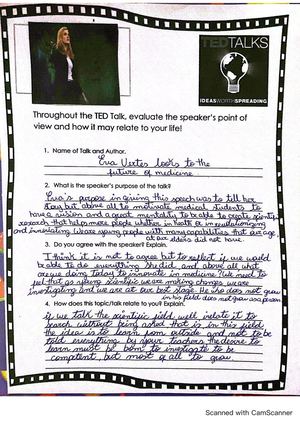 TED TALKS
IDEAS WORTH SPREADING
Throughout the TED Talk, evaluate the speaker's point of
view and how it may relate to your life!
1. Name of Talk and Author.
Eva Vertes looks to the
future of medicine
2. What is the speaker's purpose of the talk?
Eva's purpose in giving this speech was to tell her
story but above all to motivate medical students to
have a vision and a great mentality to be able to create scientific
research that helps more people whether in health or in revolutionizing
and innovating. We are young people with many capabilities that our age
at our elders did not have.
3. Do you agree with the speaker? Explain.
I think it is not to agree but to reflect if we would
be able to do everything she did, and above all what
are we doing today to innovate in medicine? We need to
feel that as young scientific we are making changes, we are
investigating and we are at our best stage. He who does not grow
in his field does not grow as a person
4. How does this topic/talk relate to you? Explain.
if we talk the scientific field well, relate it to
search without being asked that is in this field
the idea is to learn from outside and not to be
told everything by your teachers, the desire to
learn must be born to investigate to be
competent, but most of all to grow
Scanned with CamScanner